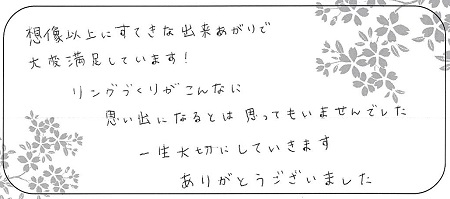 想像以上にすてきな出来あがりで
大変満足しています!
リングづくりがこんなに
思い出になるとは思ってもいませんでした
一生大切にしていきます
ありがとうございました